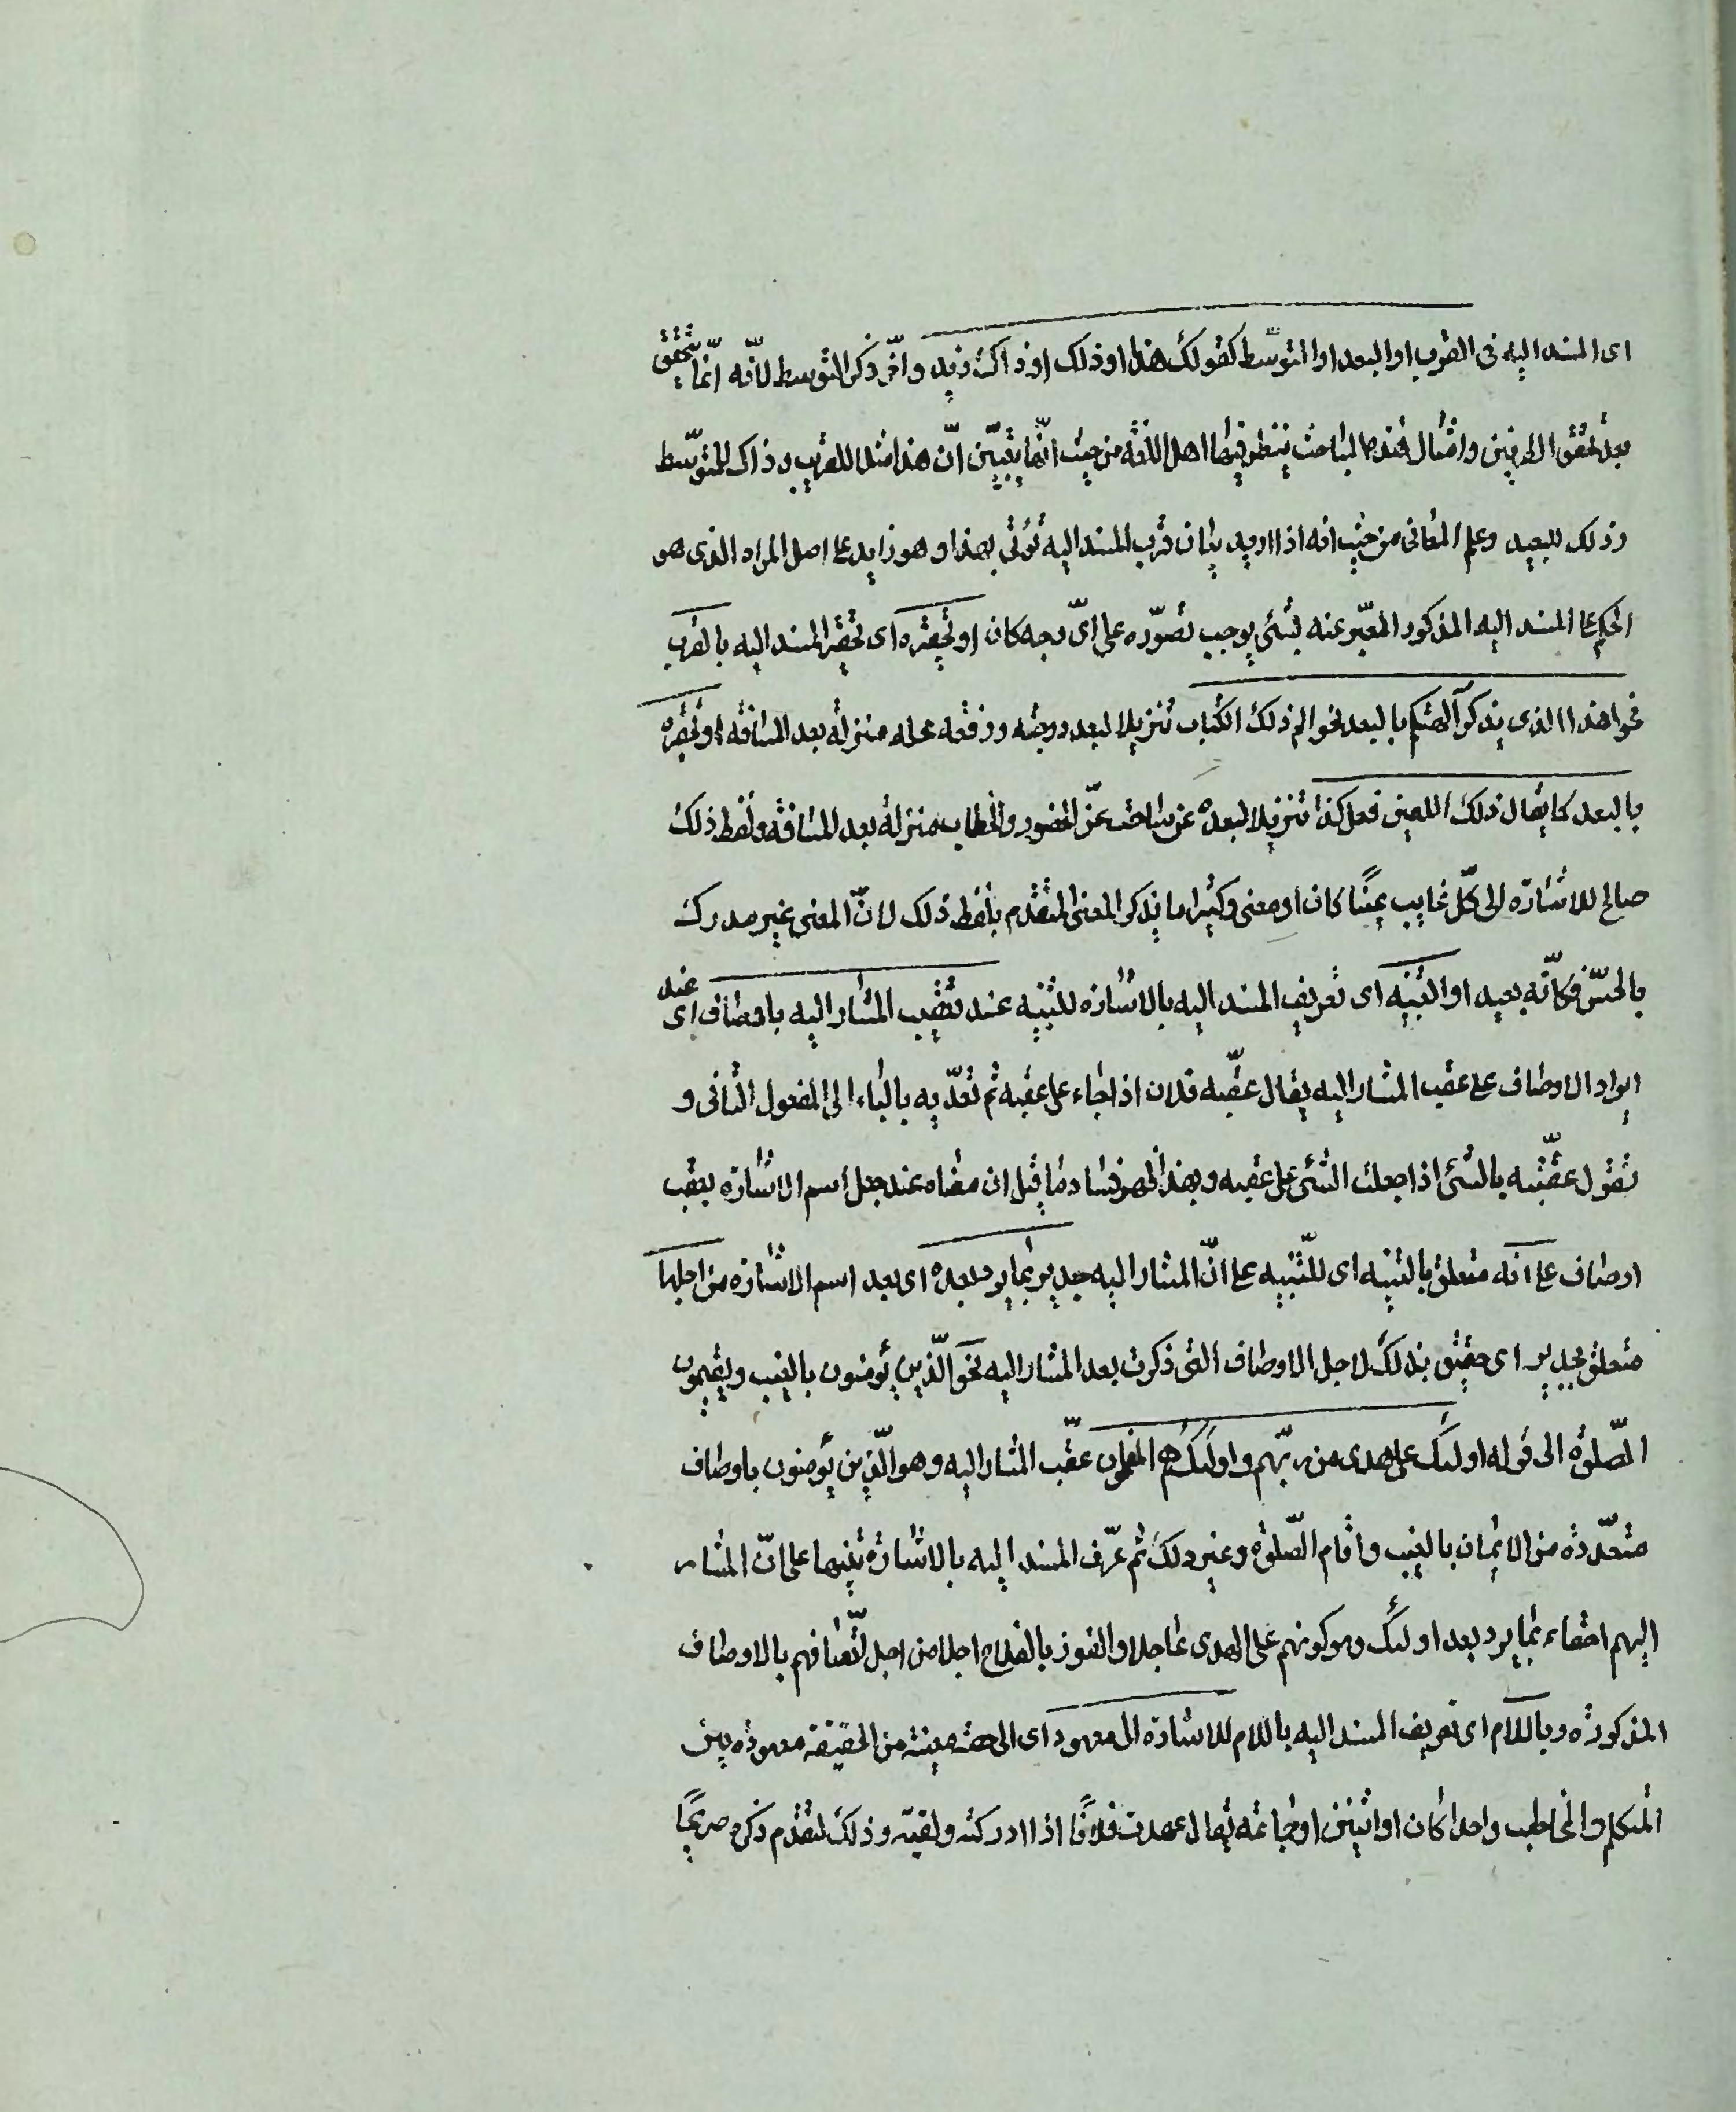 اى المسند اليه فى القرب او البعد او التوسّط كقولك هذا او ذلك او ذاك زيد واخّر ذكر التوسط لانّه انّما يتحقق
بعد تحقق الطرفين وامثال هذه المباحث ينظر فيها اهل اللغة من حيث انّها تبيّن انّ هذا مثلا للقريب وذاك للمتوسّط
وذلك للبعيد وعلم المعانى من حيث انه اذا اريد بيان قرب المسند اليه يؤتى بهذا وهو زايد على اصل المراد الذى هو
الحكم على المسند اليه المذكور المعبّر عنه بشئ يوجب تصوّره على اىّ وجه كان او تحقيره اى تحقير المسند اليه بالقرب
نحو اهذا الذى يذكر آلهتكم بالبعد نحو الم ذلك الكتاب تنزيلا لبعد درجته ورفعة محله منزلة بعد المسافة او تحقيره
بالبعد كما يقال ذلك اللعين فعل كذا تنزيلا لبعده عن ساحة عزّ الحضور والخطاب منزلة بعد المسافة ولفظ ذلك
صالح للاشارة الى كلّ غايب عينًا كان او معنى وكثيرا ما يذكر المعنى المتقدم بلفظ ذلك لانّ المعنى غير مدرك
بالحسّ فكانّه بعيد او التنبيه اى تعريف المسند اليه بالاشارة للتنبيه عند تعقيب المشار اليه باوصاف اى عند
ايراد الاوصاف على عقب المشار اليه يقال عقّبه فلان اذا جاء على عقبه ثم تعدّيه بالباء الى المفعول الثانى و
تقول عقّبته بالشئ اذا جعلت الشئ على عقبه وبهذا ظهر فساد ما قيل ان معناه عند جعل اسم الاشارة بعقب
اوصاف على انه متعلق بالتنبيه اى للتّنبيه على انّ المشار اليه جدير بما يرد بعده اى بعد اسم الاشارة من اجلها
متعلق بجدير اى حقيق بذلك لاجل الاوصاف التى ذكرت بعد المشار اليه نحو الّذين يؤمنون بالغيب ويقيمون
الصّلوة الى قوله اولئك على هدى من ربّهم واولئك هم المفلحون عقّب المشار اليه وهو الّذين يؤمنون باوصاف
متعدّدة من الايمان بالغيب واقام الصّلوة وغير ذلك ثم عرّف المسند اليه بالاشارة تنبيها على انّ المشار
اليهم احقاء بما يرد بعد اولئك وهو كونهم على الهدى عاجلا والفوز بالفلاح اجلا من اجل اتّصافهم بالاوصاف
المذكورة وباللام اى تعريف المسند اليه باللام للاشارة الى معهود اى الى حصة معينة من الحقيقة معهودة بين
المتكلم والمخاطب واحدا كان او اثنين او جماعة يقال عهدت فلانًا اذا ادركته ولقيته وذلك لتقدم ذكره صريحًا